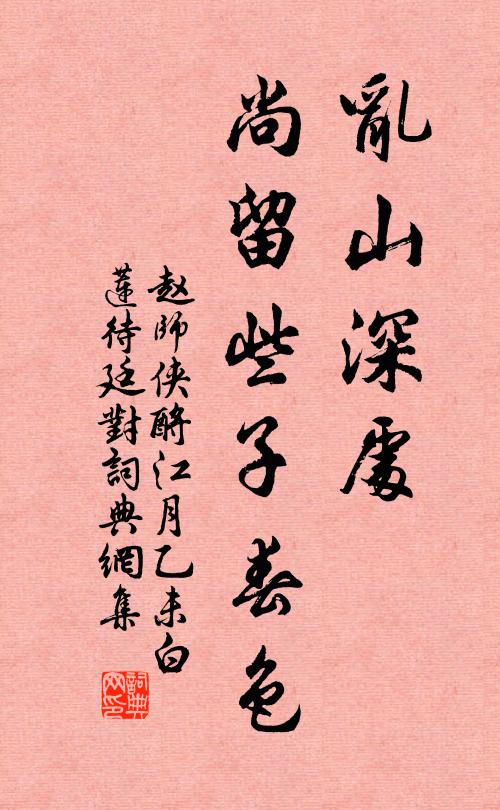 亂山深處
尚留些子春色
赵師侠酹江月乙未白
蓮待廷對詞典網集
詞典
网印